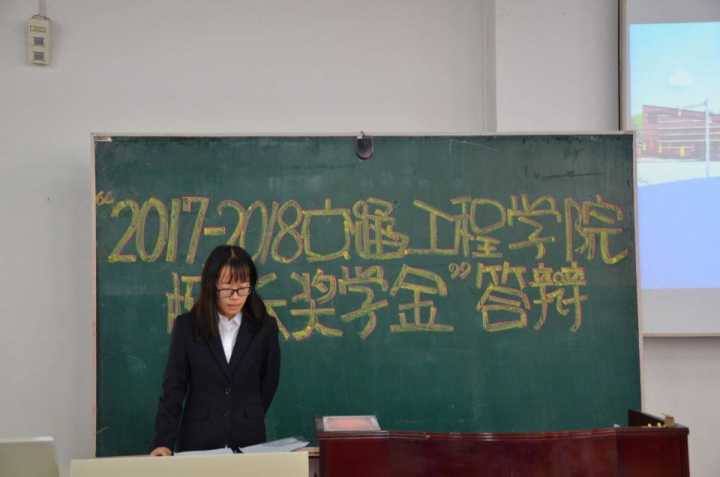 “2017-2018交通工程学院
奖学金”答辩